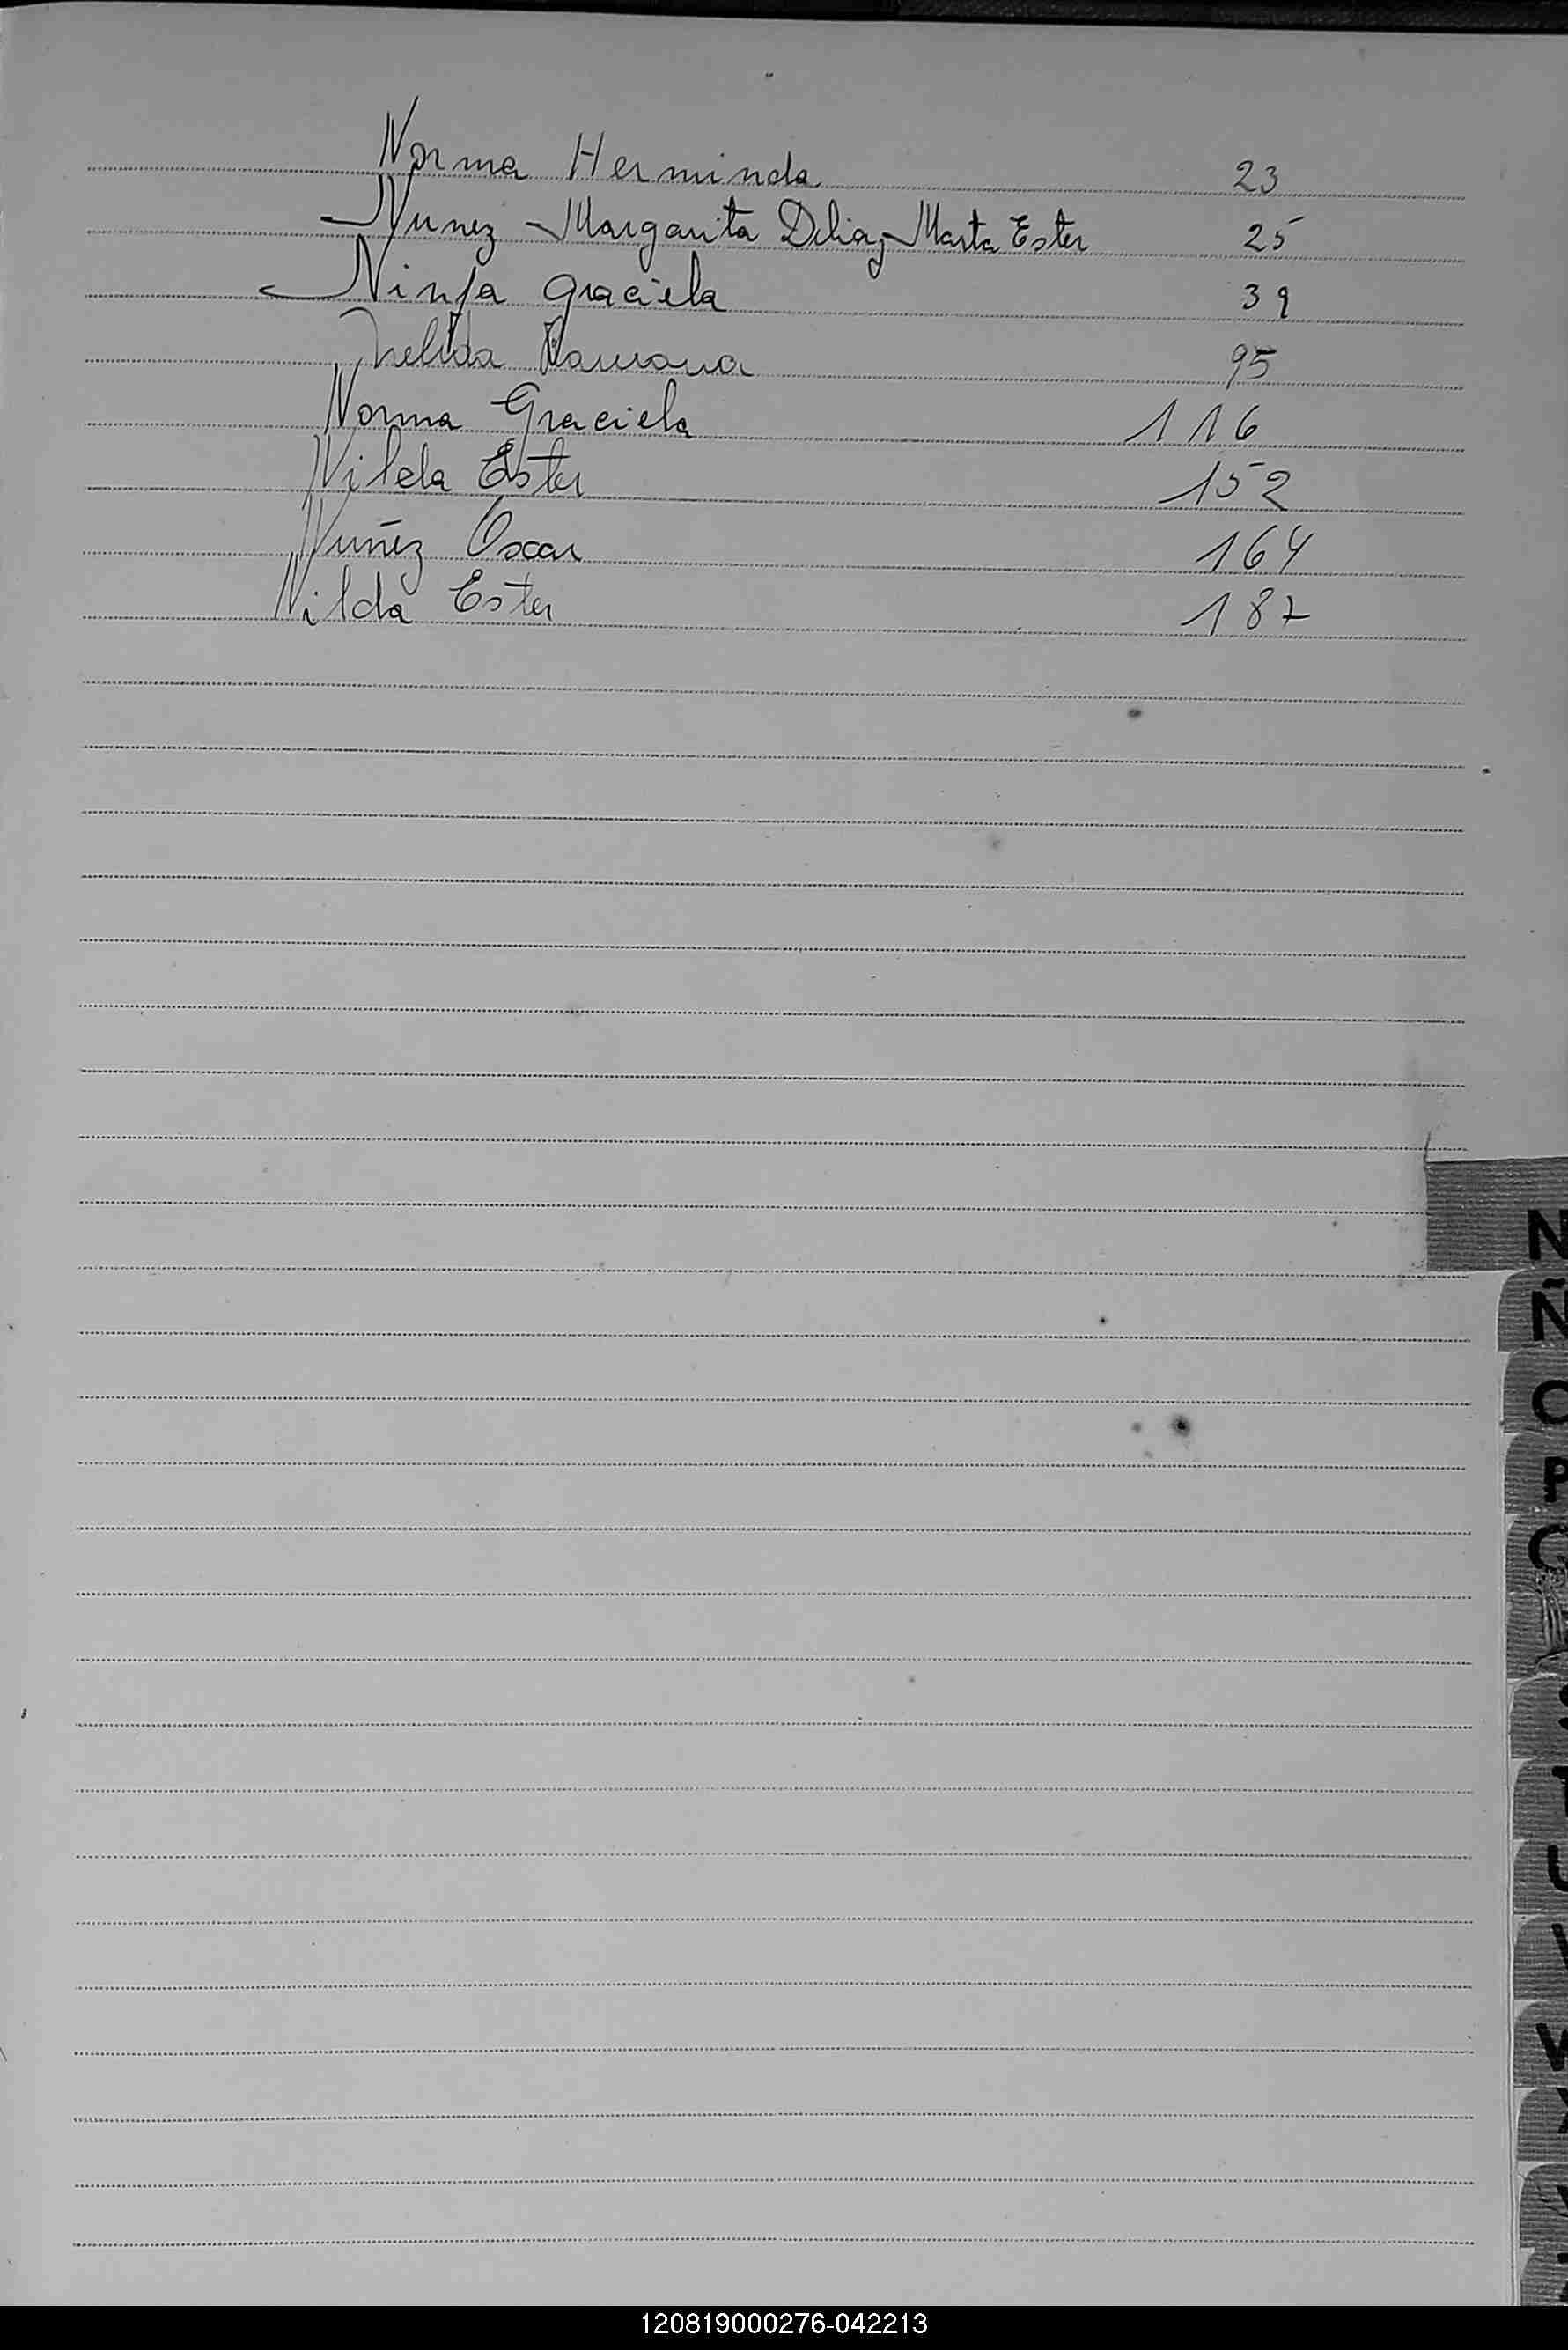 Norma Herminda 23
Nunez Margarita Delia, Marta Ester 25
Ninfa Graciela 39
Nelida Ramona 95
Norma Graciela 116
Nilda Ester 152
Nuñez Oscar 164
Nilda Ester 187
N
Ñ
O
P
Q
S
T
U
V
W
X
120819000276-042213